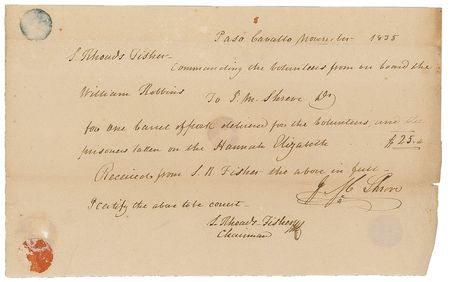 Paso Cavallo November 1835
S. Rhoads Fisher
Commanding the Volunteers from on board the
William Robbins To J. M. Shreve Dr
for one barrel of pork delivered for the Volunteers, and the
prisoners taken on the Hannah Elizabeth $25.
Received from S. R. Fisher the above in full
J M Shreve
I certify the above to be correct
S. Rhoads Fisher
Chairman